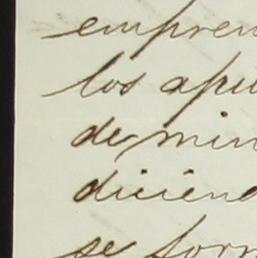 empren
los apu
de min
diciend
se form